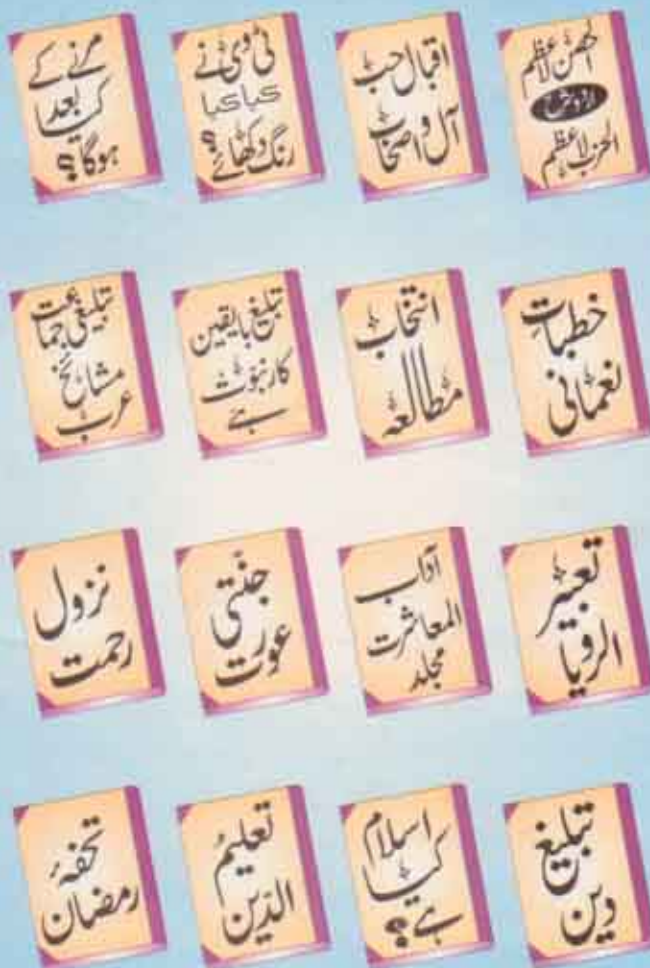 الحصن الاعظم
الحزب الاعظم
اقبال حب
آل و اصحاب
ٹی وی نے
کیا کیا
رنگ دکھائے؟
مرنے کے
بعد
کیا
ہوگا؟
خطبات
نعمانی
انتخاب
مطالعہ
تبلیغ بالیقین
کار نبوت
ہے
تبلیغی جماعت
مشائخ
عرب
تعبیر
الرویا
آداب
المعاشرت
مجلد
جنتی
عورت
نزول
رحمت
تبلیغ
دین
اسلام
کیا
ہے؟
تعلیم
الدین
تحفہٴ
رمضان